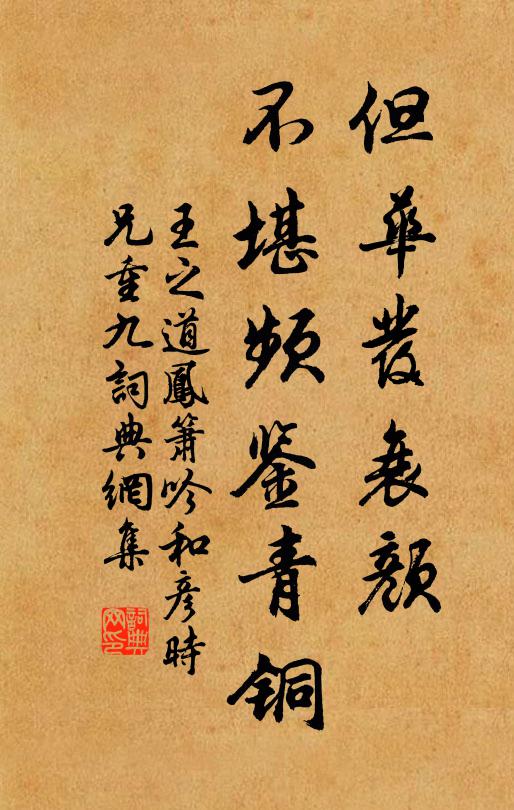 但華發衰顏
不堪頻鑒青铜
王之道鳳簫吟和彥時
兄重九詞典網集
詞典网印